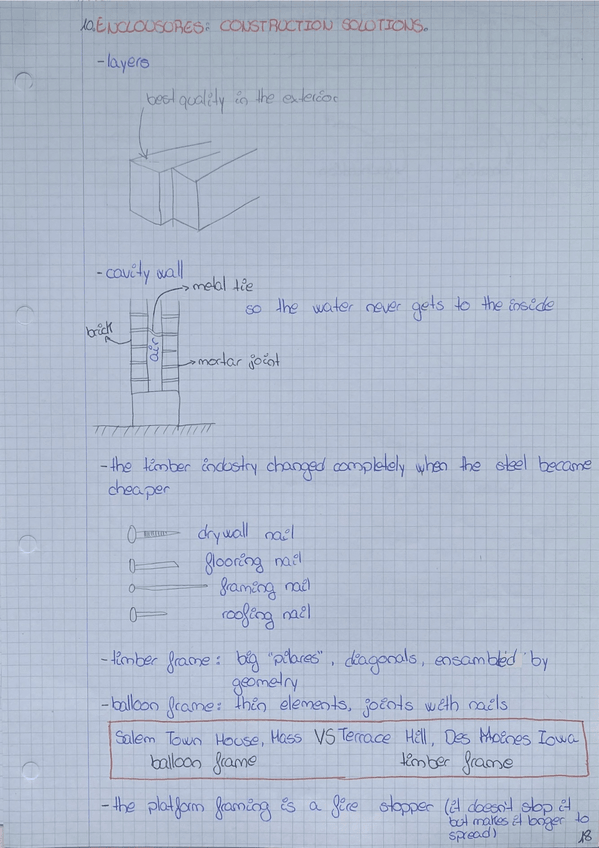 10. ENCLOUSURES: CONSTRUCTION SOLUTIONS.
- layers
best quality in the exterior
- cavity wall
metal tie
so the water never gets to the inside
brick
air
mortar joint
- the timber industry changed completely when the steel became
cheaper
drywall nail
flooring nail
framing nail
roofing nail
- timber frame: big "pilares", diagonals, ensambled by
geometry
- balloon frame: thin elements, joints with nails
Salem Town House, Mass VS Terrace Hill, Des Moines Iowa
balloon frame timber frame
- the platform framing is a fire stopper (it doesn't stop it
but makes it longer to
spread)
18